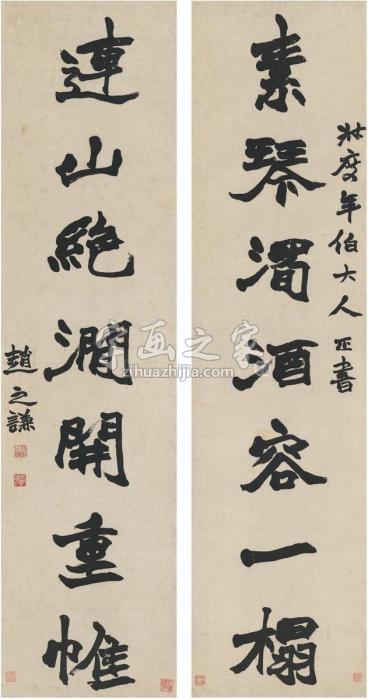 壯度年伯大人正書
素琴濁酒容一榻
連山絶澗開重帷
趙之謙
字画之家
zihuazhijia.com